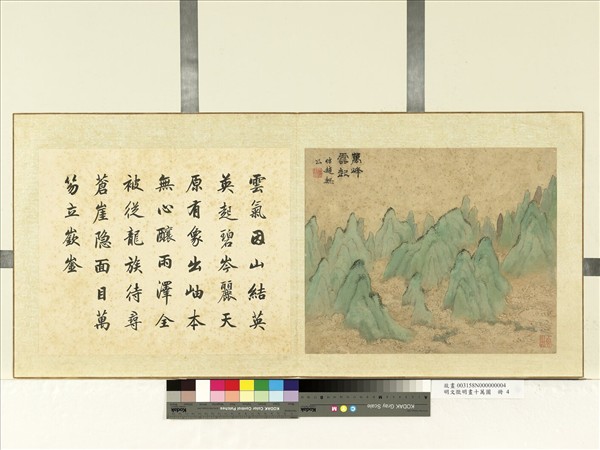 萬峰
雲起
仿趙魏
公
雲氣因山結英
英起碧岑麗天
原有象出岫本
無心釀雨澤全
被從龍族待尋
蒼崖隐面目萬
笏立嶔崟
KODAK Color Control Patches
KODAK Gray Scale
故畫 003158N000000004
明文徵明畫十萬圖 冊 4